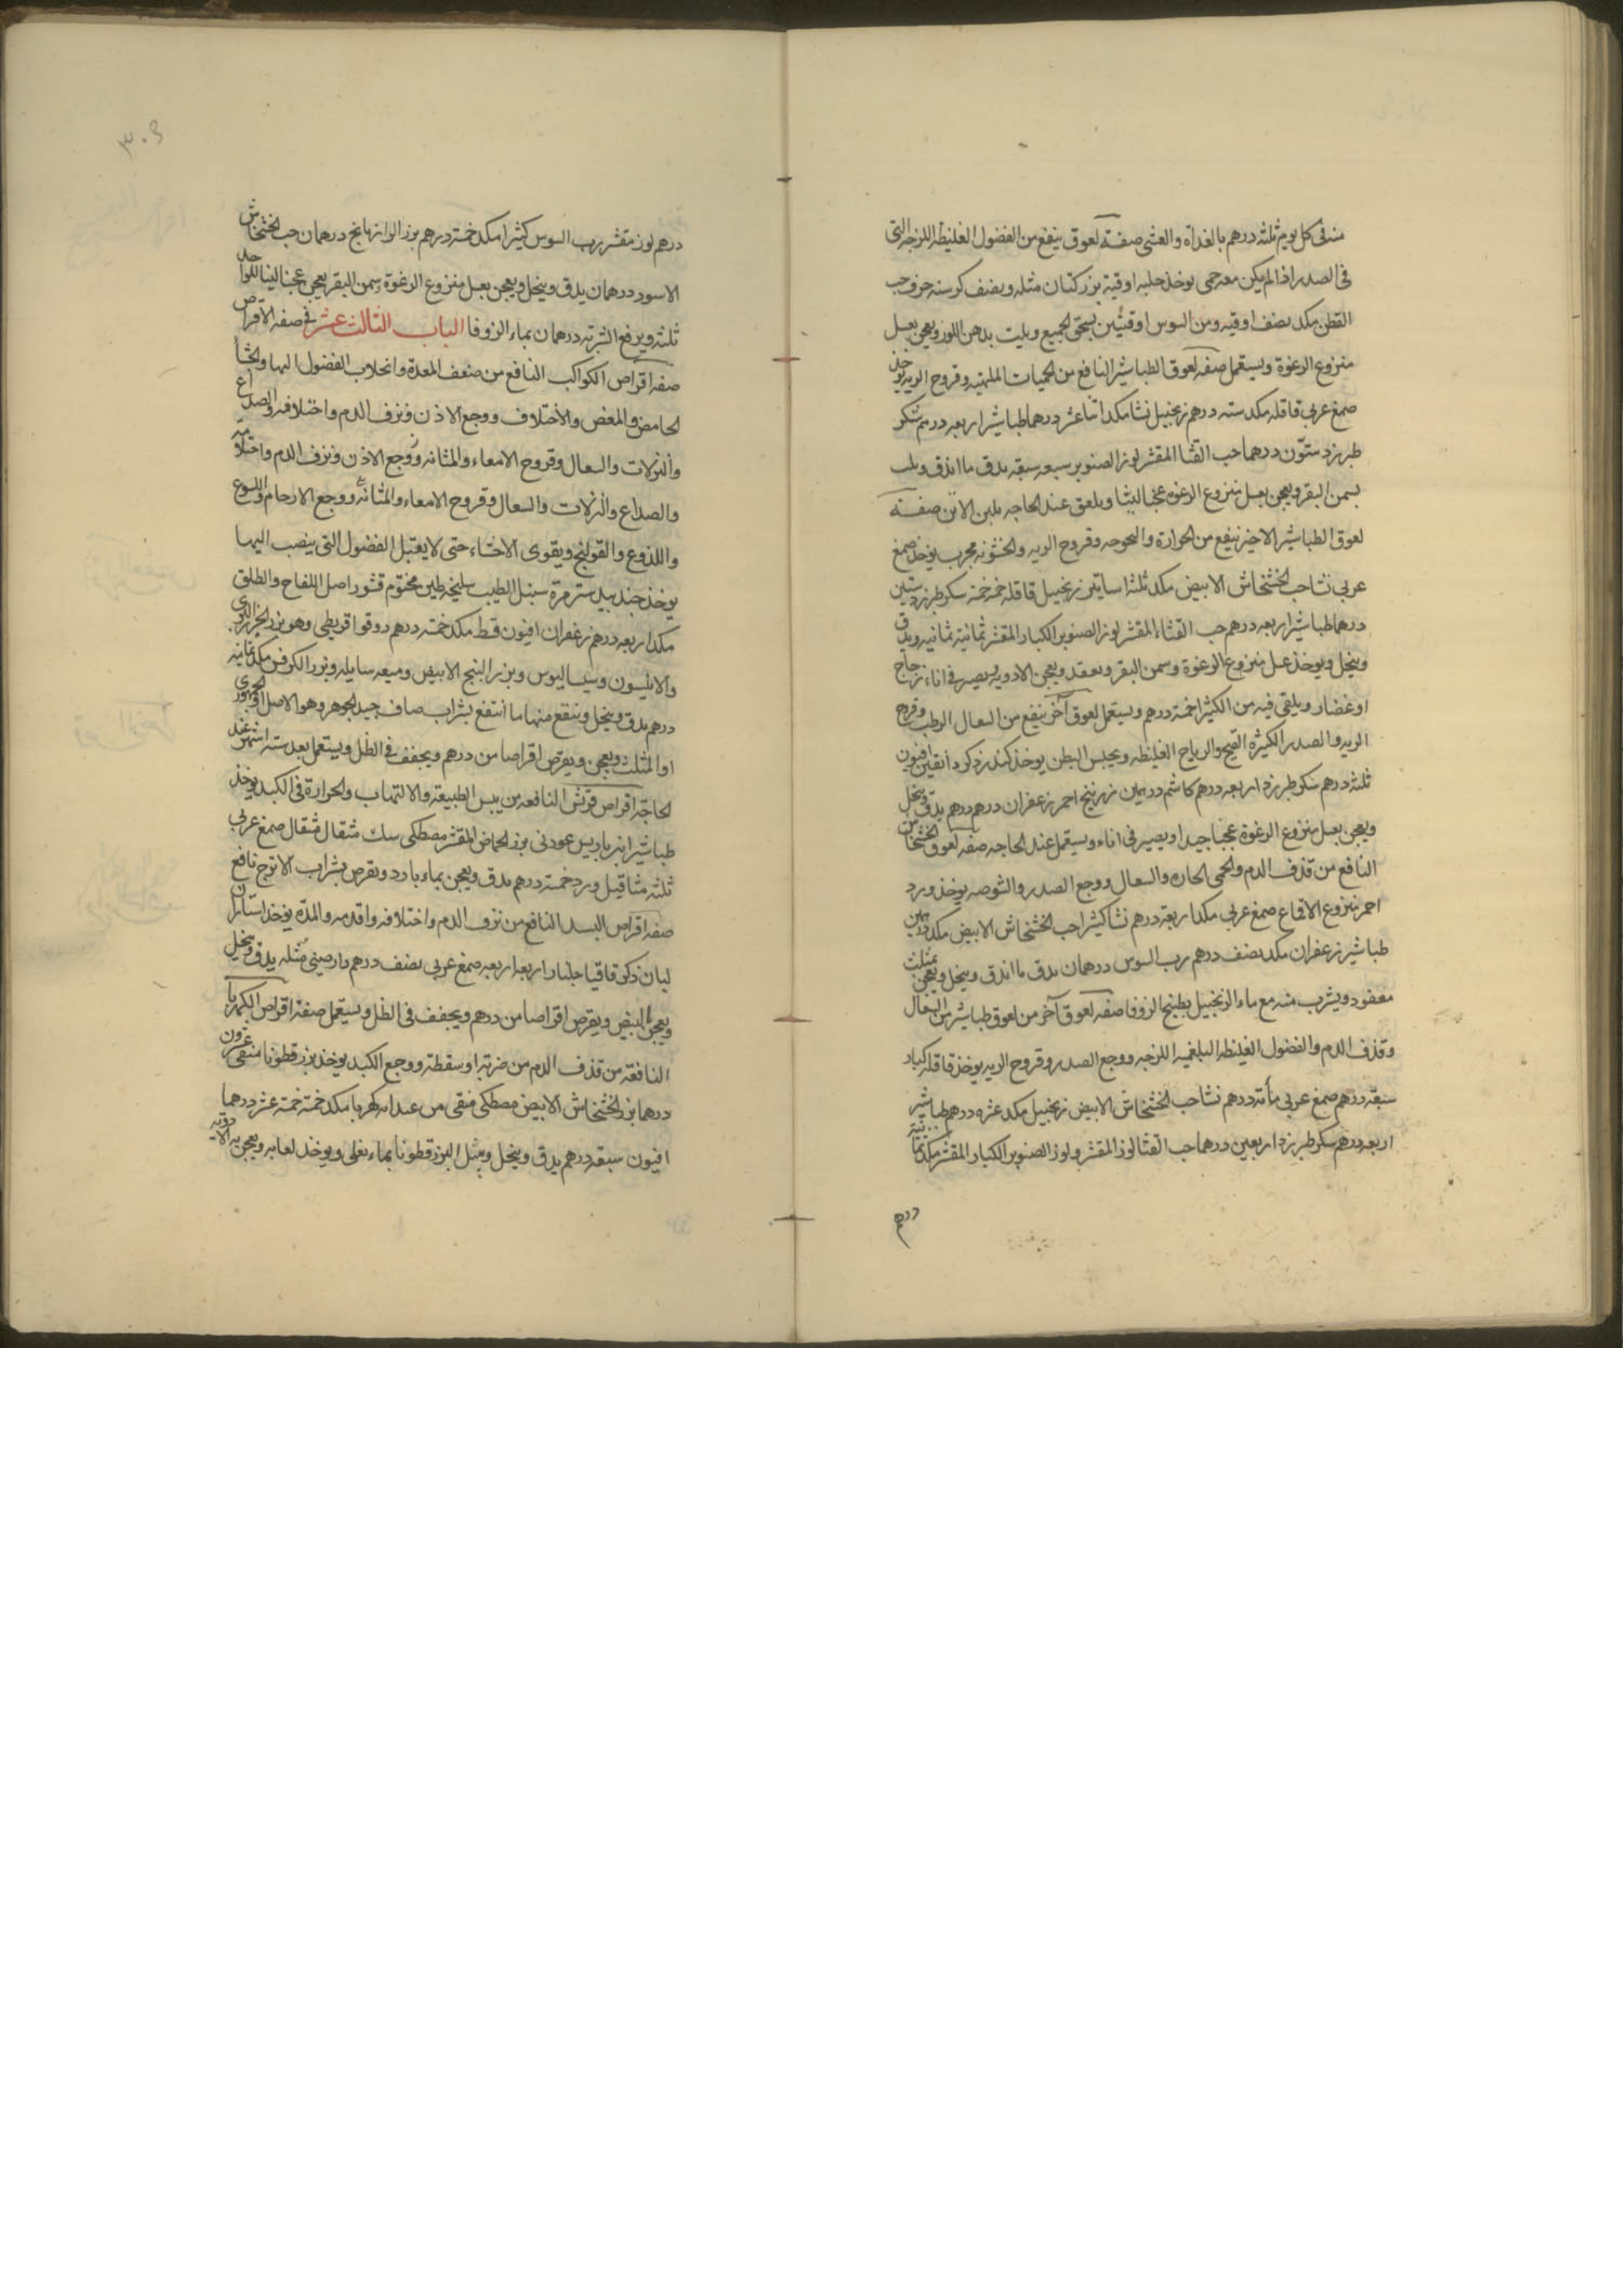 منه في كل يوم ثلثه درهم بالغداه والعشي صفة لعوق ينفع من الفضول الغليظه اللزجه التي
في الصدر اذا لم يكن معه حمى يوخذ حلبه اوقيه بزر كتان مثله ونصف كرسنه جزو حب
القطن مكد نصف اوقيه ومن السوس اوقيتين يسحق الجميع ويلت بدهن اللوز ويعجن بعسل
منزوع الرغوة ويستعمل صفه لعوق الطباشير النافع من الحميات الملهبه وقروح الريه يوخذ
صمغ عربي قاقله مكد سته درهم زنجبيل نشا مكد اثنا عشر درهما طباشير اربعه درهم سكر
طبرزد ستون درهما حب القثا المقشر لوز الصنوبر سبعه سبعه يدق ما اندق ويلت
بسمن البقر ويعجن بعسل منزوع الرغوه عجنا لينا ويلعق عند الحاجه بلبن الاتن صفة
لعوق الطباشير الاخير ينفع من الحرارة والبحوحه وقروح الريه والخشونه مجرب يوخذ صمغ
عربي نشا حب الخشخاش الابيض مكد ثلثه اساتير زنجبيل قاقله خمسه خمسه سكر طبرزد ستين
درهما طباشير اربعه درهم حب القثاء المقشر لوز الصنوبر الكبار المقشر ثمانية ثمانيه ويدق
وينخل ويوخذ عسل منزوع الرغوة وسمن البقر ويعقد ويعجن الادويه ويصير في اناء زجاج
او غضار ويلقى فيه من الكثيرا خمسة درهم ويستعمل لعوق آخر ينفع من السعال الرطب وقروح
الريه والصدر الكثيرة القيح والرياح الغليظه ويحبس البطن يوخذ كندر ذكر دانقين افيون
ثلثه درهم سكر طبرزد اربعه درهم كاشم درهمين زرنيخ احمر زعفران درهم درهم يدق وينخل
ويعجن بعسل منزوع الرغوة عجنا جيدا ويصير في اناء ويستعمل عند الحاجه صفه لعوق الخشخاش
النافع من قذف الدم والحمى الحاره والسعال ووجع الصدر والشوصه يوخذ ورد
احمر منزوع الاقماع صمغ عربي مكد اربعة درهم نشا كثيرا حب الخشخاش الابيض مكد درهمين
طباشير زعفران مكد نصف درهم رب السوس درهمان يدق ما اندق وينخل ويعجن بمثلث
معقود ويشرب منه مع ماء الزنجبيل بطبيخ الزوفا صفه لعوق آخر من لعوق طباشير من السعال
وقذف الدم والفضول الغليظه البلغميه اللزجه ووجع الصدر وقروح الريه يوخذ قاقله كبار
سبعة درهم صمغ عربي مأة درهم نشا حب الخشخاش الابيض زنجبيل مكد عشره درهم طباشير
اربعه درهم سكر طبرزد اربعين درهما حب القثا لوز المقشر ولوز الصنوبر الكبار المقشر مكد ثمانية
درهم
درهم لوز مقشر رب السوس كثيرا مكد خمسة درهم بزر الرازيانج درهمان حب الخشخاش
الاسود درهمان يدق وينخل ويعجن بعسل منزوع الرغوة وسمن البقر يعجن عجنا لينا للواحد
ثلثه ويرفع الشربه درهمان بماء الزوفا الباب الثالث عشر في صفه الاقراص
صفه اقراص الكواكب النافع من ضعف المعدة وانحلاب الفضول اليها والجشأ
الحامض والمغص والاختلاف ووجع الاذن ونزف الدم واختلافه والصداع
والنزلات والسعال وقروح الامعاء والمثانه ووجع الاذن ونزف الدم واختلافه
والصداع والنزلات والسعال وقروح الامعاء والمثانه ووجع الارحام واللسوع
واللذوع والقولنج ويقوى الاحشاء حتى لا يقبل الفضول التي ينصب اليها
يوخذ جندبيدستر مرة سنبل الطيب سليخه طين مختوم قشور اصل اللفاح والطلق
مكد اربعه درهم زعفران افيون قسط مكد خمسه درهم دوقوا قريطي وهو بزر الجزر البري
والانيسون وسيساليوس وبزر البنج الابيض وميعه سايله وبزر الكرفس مكد ثمانيه
درهم يدق وينخل وينقع منها ما انتفع بشراب صاف جيد الجوهر وهو الاصل او الجمهوري
او المثلث ويعجن ويقرص اقراصا من درهم ويجفف في الظل ويستعمل بعد سته اشهر عند
الحاجة اقراص قرش النافعه من يبس الطبيعة والالتهاب والحرارة في الكبد يوخذ
طباشير انبرباريس عود ني بزر الحماض المقشر مصطكى سك مثقال مثقال صمغ عربي
ثلثه مثاقيل ورد خمسة درهم يدق ويعجن بماء بارد ويقرص بشراب الاترج نافع
صفه اقراص البسد النافع من نزف الدم واختلافه واقدمه والمدة يوخذ استاران
لبان ذكر قاقيا جلنار اربعه اربعه صمغ عربي نصف درهم دارصيني مثله يدق وينخل
ويعجن البيض ويقرص اقراصا من درهم ويجفف في الظل ويستعمل صفة اقراص الكهربا
النافعة من قذف الدم من ضربه او سقطة ووجع الكبد يوخذ بزر قطونا منقى عشرون
درهما بزر الخشخاش الابيض مصطكى منقى من عيدانه كهربا مكد خمسة خمسة عشر درهما
افيون سبعه درهم يدق وينخل ويبثل البزر قطونا بماء يغلي ويوخذ لعابه ويعجن به الادويه